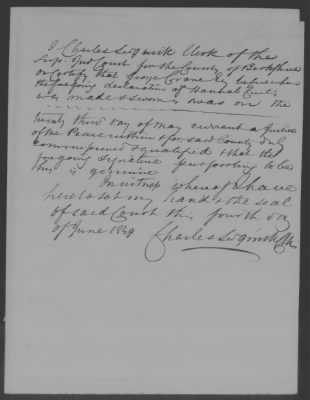 I Charles Sedgwick Clerk of the
Sup. Jud Court for the County of Berkshire
do certify that George Crane Esq before whom
the foregoing declaration of Hannah
was made & sworn was on the
twenty third day of May current a Justice
of the Peace within & for said County duly
commissioned & qualified & that the
foregoing signature purporting to be
his is genuine
In witness whereof I have
hereto set my hand & the seal
of said Court this fourth day
of June 1849
Charles Sedgwick Clk